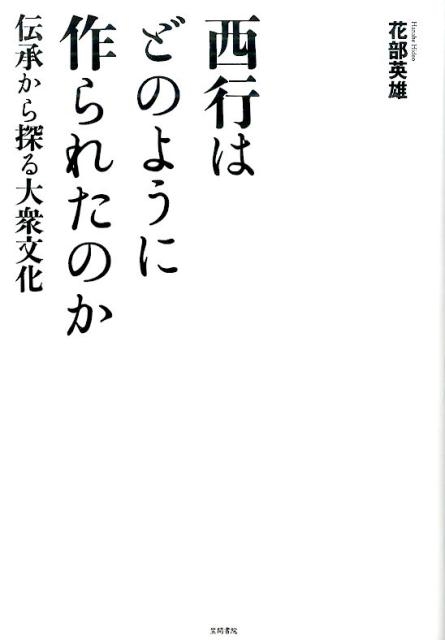 花部英雄
Hanabe Hideo
西行は
どのように
作られたのか
伝承から探る大衆文化
笠間書院